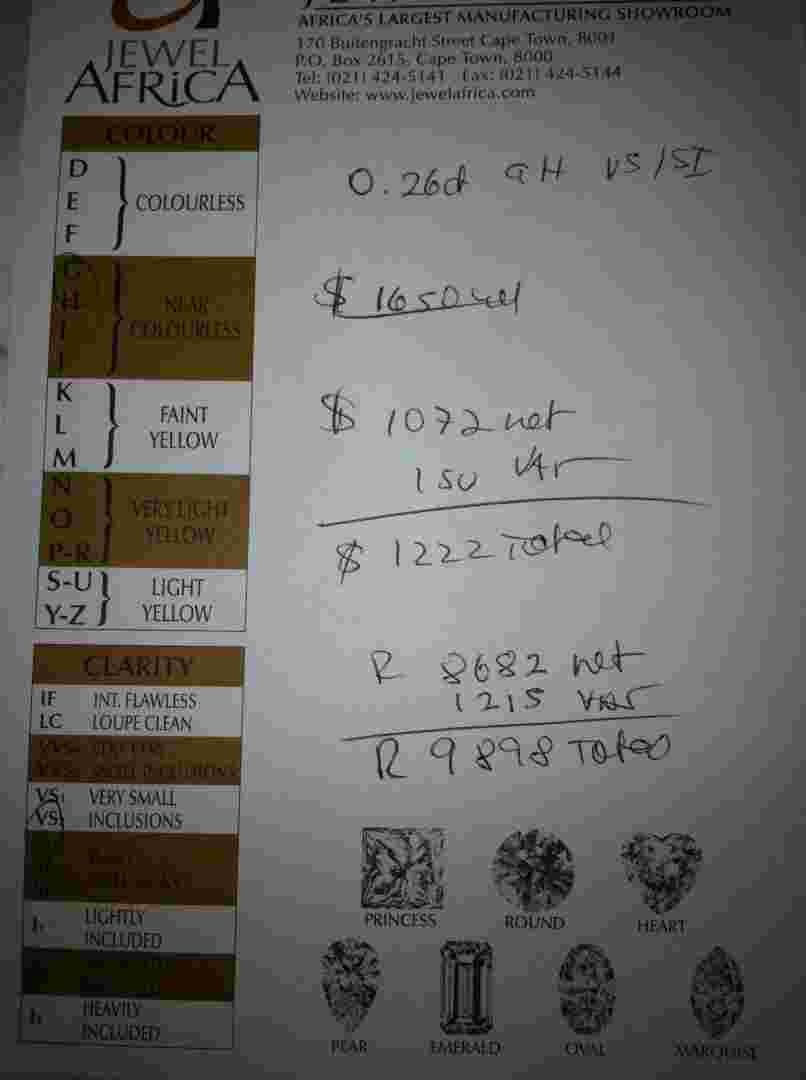 JEWEL
AFRiCA
AFRICA'S LARGEST MANUFACTURING SHOWROOM
170 Buitengracht Street Cape Town, 8001
P.O. Box 2615, Cape Town, 8000
Tel: (021) 424-5141 Fax: (021) 424-5144
Website: www.jewelafrica.com
COLOUR
D
E
F
COLOURLESS
G
H
I
J
NEAR
COLOURLESS
K
L
M
FAINT
YELLOW
N
O
P-R
VERY LIGHT
YELLOW
S-U
Y-Z
LIGHT
YELLOW
CLARITY
IF INT. FLAWLESS
LC LOUPE CLEAN
SMALL INCLUSIONS
VS1 VERY SMALL
VS INCLUSIONS
LIGHTLY
INCLUDED
HEAVILY
INCLUDED
0.26ct GH VS/SI
$ 1650
$ 1072 net
150 VAT
$ 1222 Total
R 8682 net
1215 VAT
R 9898 Total
PRINCESS
ROUND
HEART
PEAR
EMERALD
OVAL
MARQUISE